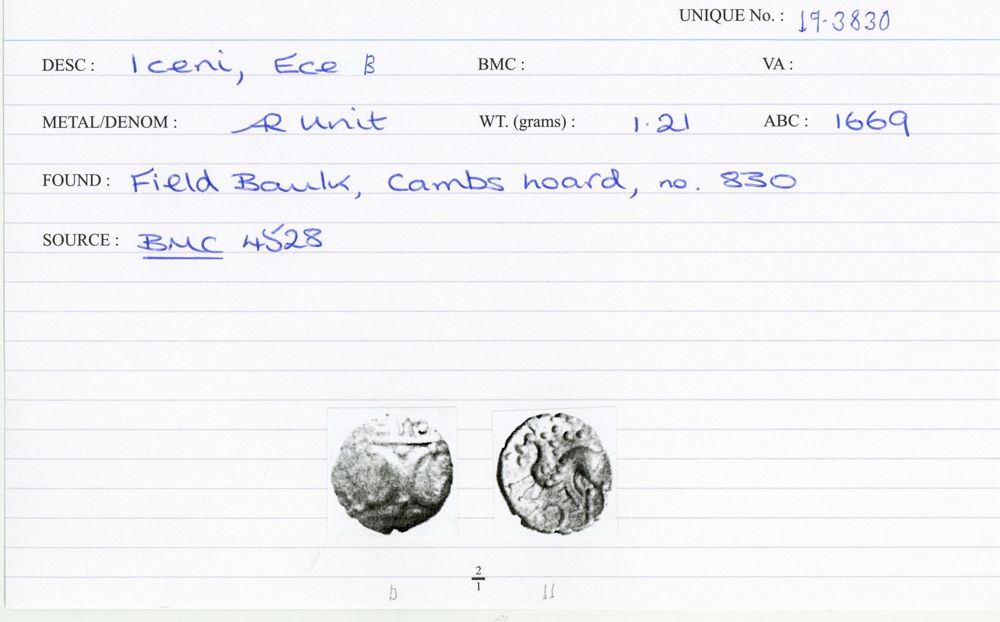 UNIQUE No. : 19-3830
DESC : Iceni, Ece B BMC : VA :
METAL/DENOM : AR unit WT. (grams) : 1.21 ABC : 1669
FOUND : Field Baulk, Cambs hoard, no. 830
SOURCE : BMC 4528
2
1
b 11